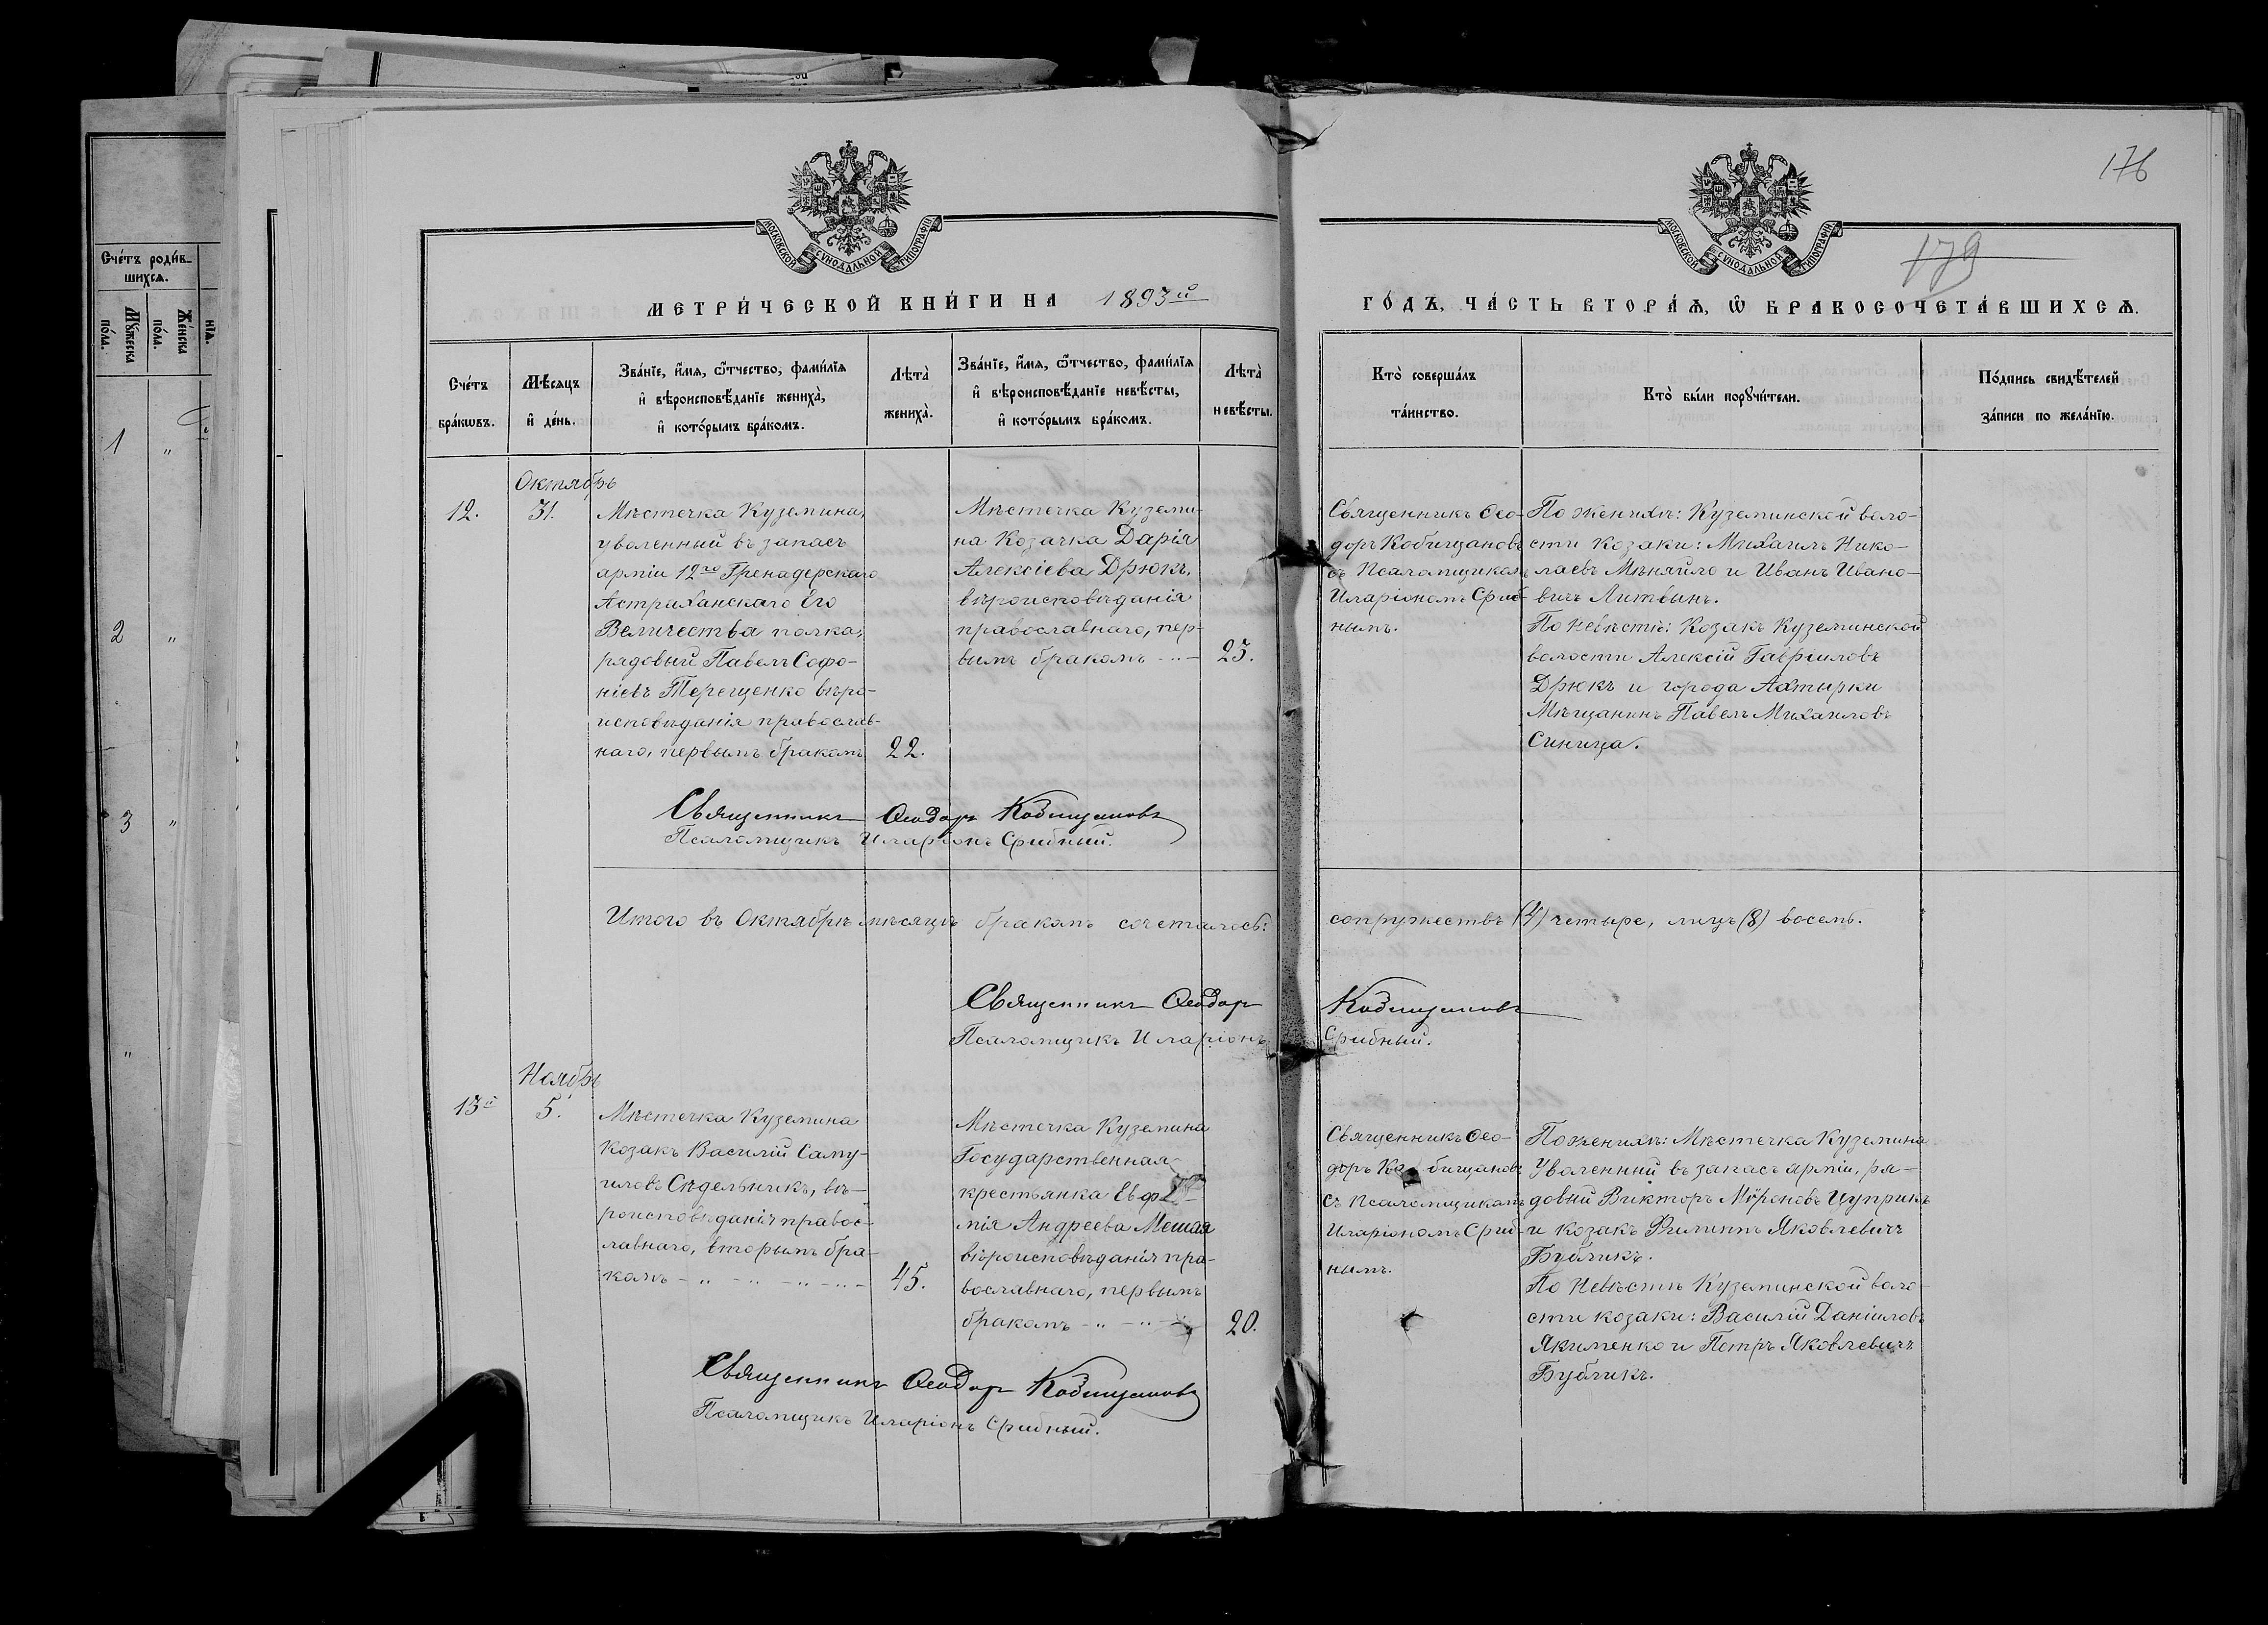 176
179
МОСКОВСКОЙ СУНОДАЛЬНОЙ ТИПОГРАФІИ
МОСКОВСКОЙ СУНОДАЛЬНОЙ ТИПОГРАФІИ
МЕТРИ́ЧЕСКОЙ КНИ́ГИ НА 1893й
ГО́ДЪ, ЧА́СТЬ ВТОРА́Я, Ѡ БРАКОСОЧЕТА́ВШИХСѦ.
Сче́тъ роди́в-
шихсѧ.
Мꙋ́жеска
по́ла.
Же́нска
по́ла.
нїѧ.
1 "
2 "
3 "
"
Сче́тъ
бра́кѡвъ.
Мѣ́сяцъ
и҆ де́нь.
Зва́нїе, и҆́мѧ, ѻ҆́тчество, фами́лїѧ
и҆ вѣроисповѣ́данїе жениха̀,
и҆ кото́рымъ бра́комъ.
Лѣта̀
жениха̀.
Зва́нїе, и҆́мѧ, ѻ҆́тчество, фами́лїѧ
и҆ вѣроисповѣ́данїе невѣ́сты,
и҆ кото́рымъ бра́комъ.
Лѣта̀
невѣ́сты.
Кто̀ соверша́лъ
та́инство.
Кто̀ бы́ли порꙋчи́тели.
По́дпись свидѣ́телей
за́писи по жела́нїю.
12.
Октябрь
31.
Мѣстечка Куземина,
уволенный въ запасъ
арміи 12го Гренадерскаго
Астраханскаго Его
Величества полка,
рядовый Павелъ Софо-
ніевъ Терещенко вѣро-
исповѣданія православ-
наго, первымъ бракомъ
22.
Мѣстечка Куземи-
на Козачка Дарія
Алексіева Дрюкъ,
вѣроисповѣданія
православнаго, пер-
вымъ бракомъ - " -
23.
Священникъ Ѳео-
доръ Кобищановъ
съ Псаломщикомъ
Иларіономъ Сриб-
нымъ.
По женихѣ: Куземинской воло-
сти Козаки: Михаилъ Нико-
лаевъ Мѣняйло и Иванъ Ивано-
вичъ Литвинъ.
По Невѣстѣ: Козакъ Куземинской
волости Алексій Гавріиловъ
Дрюкъ и города Ахтырки
Мѣщанинъ Павелъ Михаиловъ
Синица.
Священникъ Ѳеодоръ Кобищановъ
Псаломщикъ Иларіонъ Срибный.
Итого въ Октябрѣ мѣсяцѣ бракомъ сочеталось: сопружествъ (4) четыре, лицъ (8) восемь.
Священникъ Ѳеодоръ Кобищановъ
Псаломщикъ Иларіонъ Срибный.
13й
Ноябрь
5.
Мѣстечка Куземина
Козакъ Василій Саму-
иловъ Сѣдельникъ, вѣ-
роисповѣданія правос-
лавнаго, вторымъ бра-
комъ - " - " - " - " -
45.
Мѣстечка Куземина
Государственная
крестьянка Евфи-
мія Андреева Мешая
вѣроисповѣданія пра-
вославнаго, первымъ
бракомъ - " - " -
20.
Священникъ Ѳео-
доръ Кобищановъ
съ Псаломщикомъ
Иларіономъ Сриб-
нымъ.
По женихѣ: Мѣстечка Куземина
Уволенный въ запасъ арміи, ря-
довый Викторъ Мѵроновъ Цуприкъ
и козакъ Филиппъ Яковлевичъ
Бубликъ.
По Невѣстѣ Куземинской воло-
сти козаки: Василій Даніиловъ
Якименко и Петръ Яковлевичъ
Бубликъ.
Священникъ Ѳеодоръ Кобищановъ
Псаломщикъ Иларіонъ Срибный.